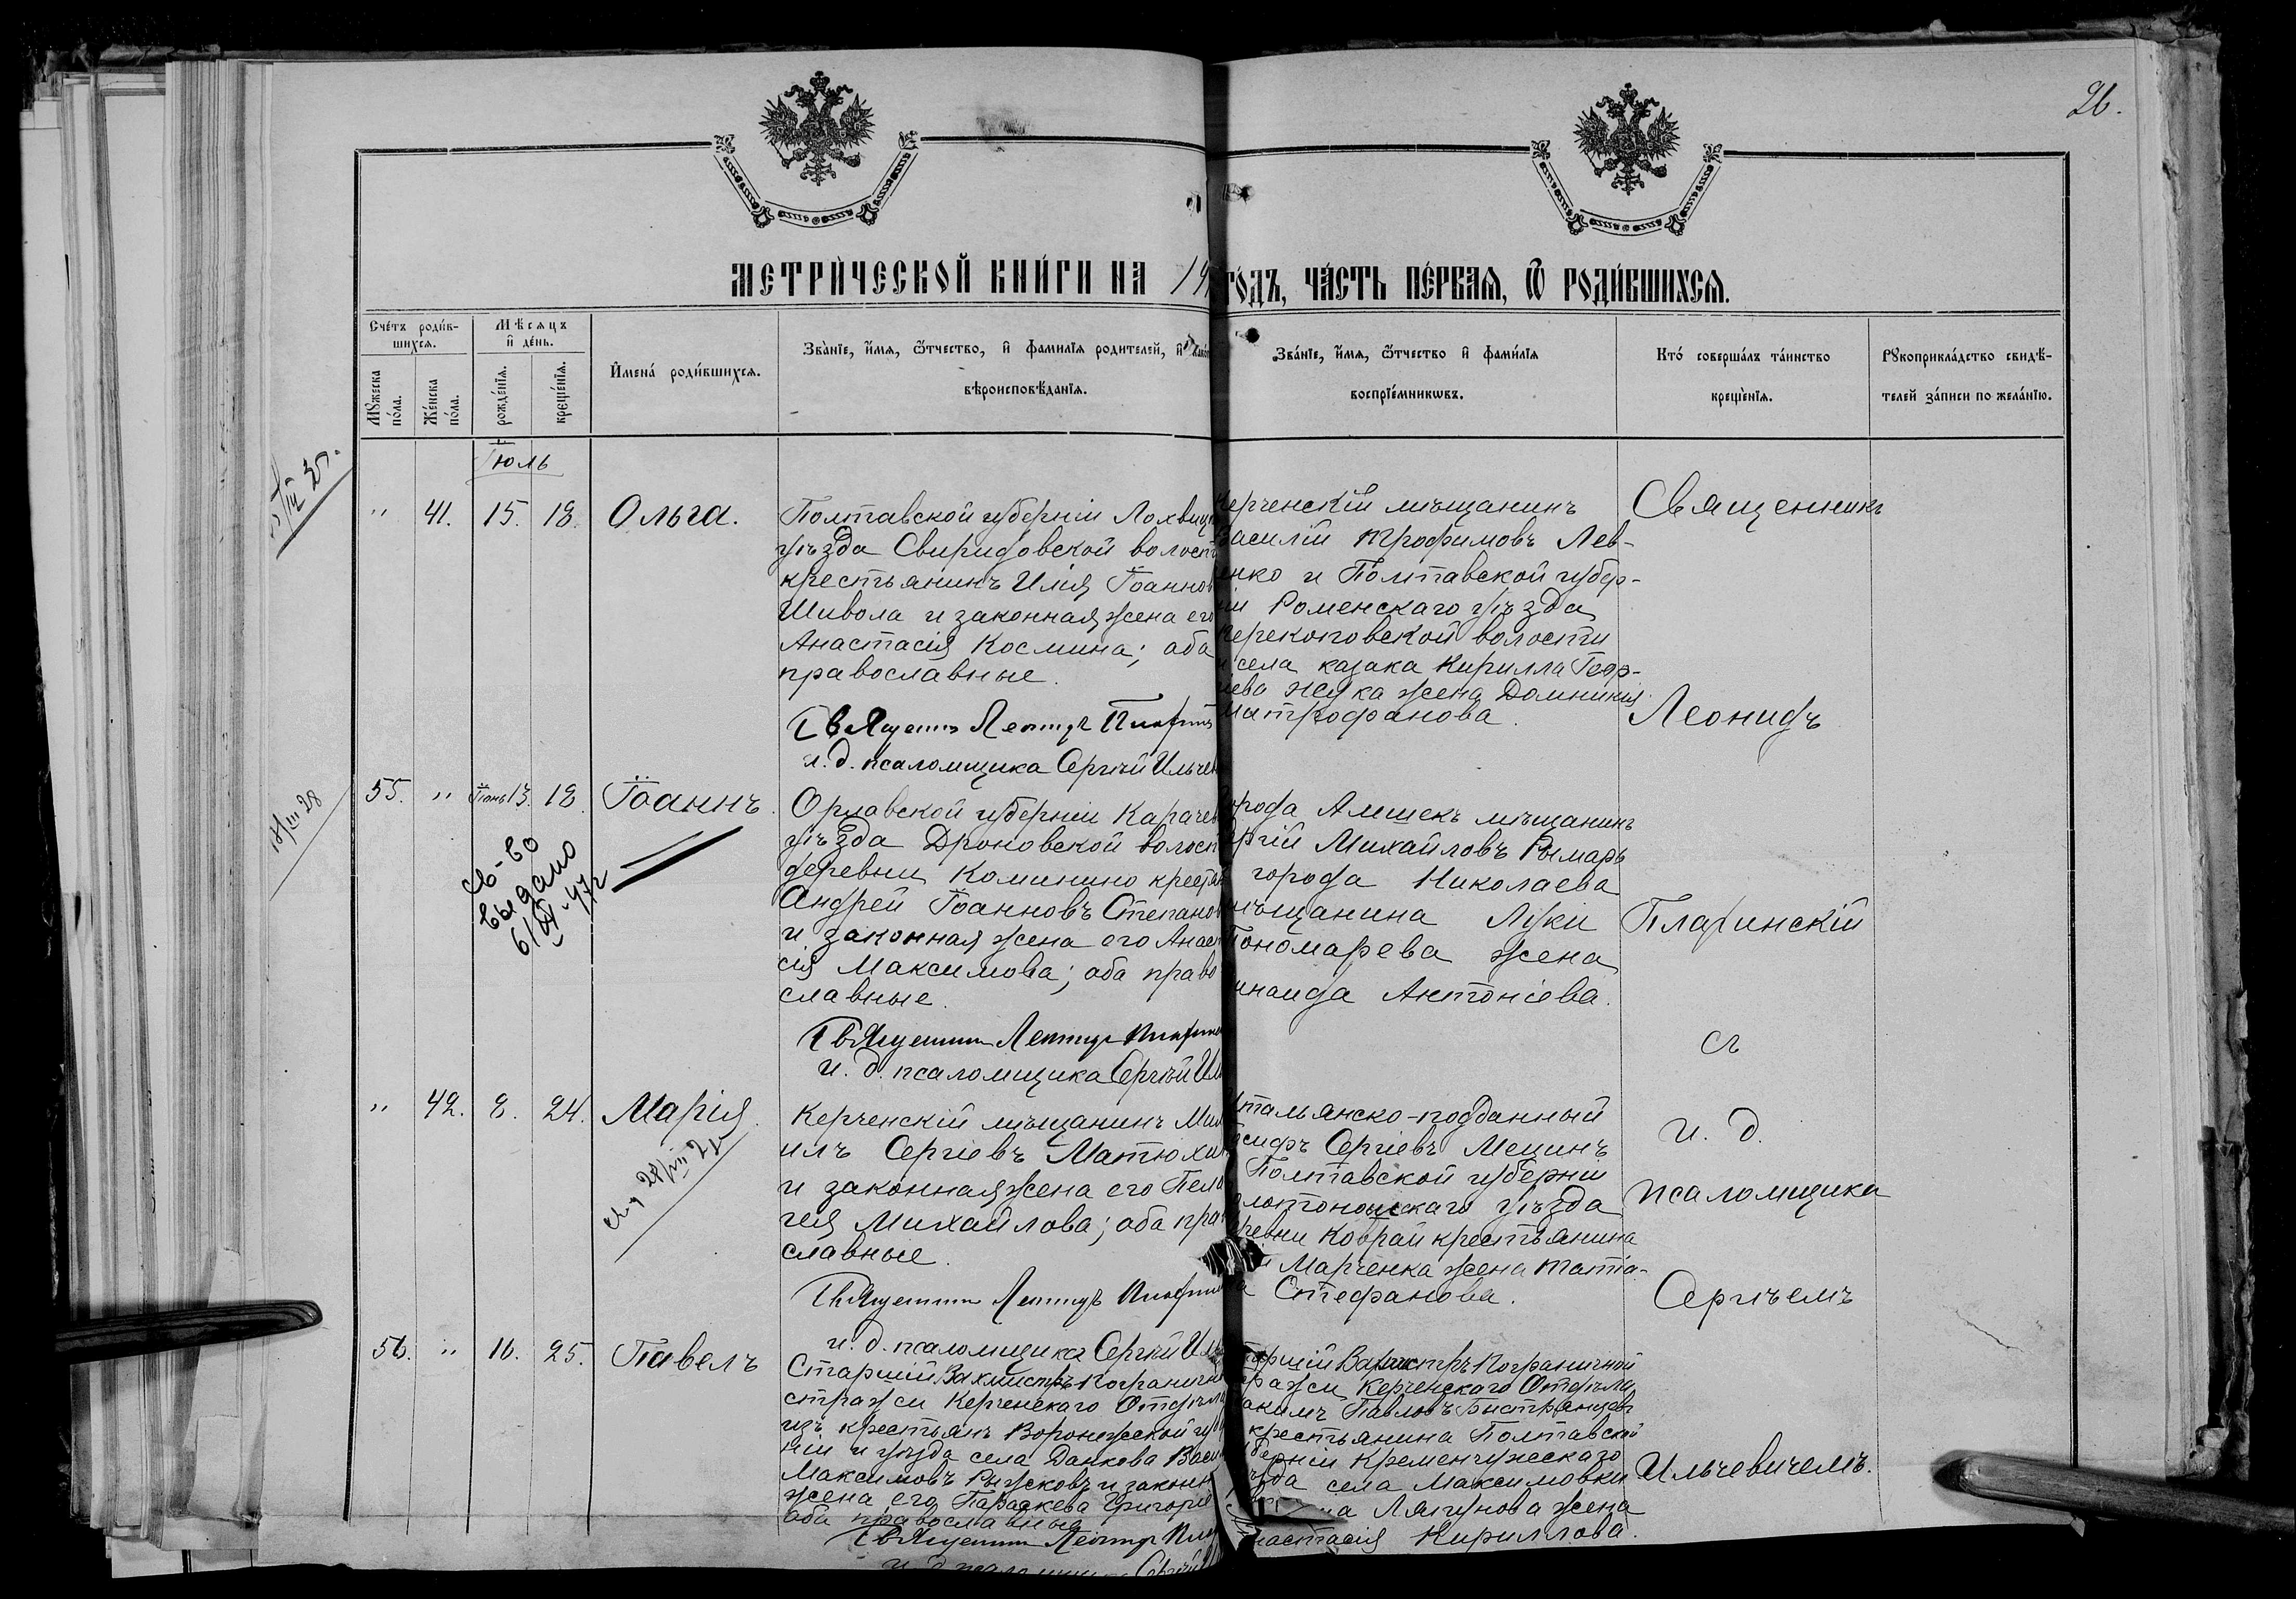 26.
МЕТРИ́ЧЕСКОЙ КНИ́ГИ НА 19
ГО́ДЪ, ЧА́СТЬ ПЕ́РВАЯ, Ѿ РОДИ́ВШИХСЯ.
Сче́тъ роди́в-
шихся.
Мꙋжеска
по́ла.
Же́нска
по́ла.
Мѣ́сяцъ
и҆ де́нь.
рожде́нїѧ.
креще́нїѧ.
И҆мена̀ роди́вшихсѧ.
Зва́нїе, и҆́мѧ, ѻ҆́тчество, и҆ фами́лїѧ роди́телей, и҆ како
вѣроисповѣ́данїѧ.
Зва́нїе, и҆́мѧ, ѻ҆́тчество и҆ фами́лїѧ
воспрїе́мникѡвъ.
Кто̀ соверша́лъ та́инство
креще́нїѧ.
Рꙋкоприкла́дство свидѣ́-
телей за́писи по жела́нїю.
Іюль
" 41. 15. 18. Ольга.
Полтавской губерніи Лохвиц
уѣзда Свиридовской волост
крестьянинъ Илія Іоаннов
Шивола и законная жена его
Анастасія Космина; оба
православные.
Священ Леонидъ
и. д. псаломщика Сергѣй Ильчев
Керченскій мѣщанинъ
Василій Трофимовъ Лев-
енко и Полтавской губер-
ніи Роменскаго уѣзда
Перекоповской волости
села казака Кирилла Геор-
гіева Жука жена Домникія
Митрофанова.
Священникъ
Леонидъ
55. " Іюнь 13. 18. Іоаннъ.
св-во
выдано
Орловской губерніи Карачев
уѣзда Дроновской волост
деревни Коминино крестьян
Андрей Іоанновъ Степанов
и законная жена его Анаста
сія Максимова; оба право
славные.
Священникъ Леонидъ
и. д. псаломщика Сергѣй Ил
города Алешекъ мѣщанинъ
ргій Михайловъ Рымарь
города Николаева
мѣщанина Луки
Пономарева жена
инаида Антоніева.
съ
18/III 28
" 42. 8. 24. Марія.
28/III 28
Керченскій мѣщанинъ Миха
илъ Сергіевъ Матюхи
и законная жена его Пела
гія Михайлова; оба прав
славные.
Священникъ Леонидъ
и. д. псаломщика Сергѣй Иль
Итальянско-подданный
осифъ Сергіевъ Мецинъ
Полтавской губерніи
олотоношскаго уѣзда
еревни Коврай крестьянина
Марченка жена Татіа-
на Стефанова.
и. д.
псаломщика
Сергѣемъ
56. " 16. 25. Павелъ
Старшій Вахмистръ Погранично
стражи Керченскаго Отдѣла
изъ крестьянъ Воронежской гу
ніи и уѣзда села Данкова Васи
Максимовъ Рыжковъ и законн
жена его Параскева Григорі
оба православные
Священникъ Леонидъ
и. д. псаломщи Сергѣй
таршій Вахмистръ Пограничной
тражи Керченскаго Отдѣла
акимъ Павловъ
крестьянина Полтавской
уберніи Кременчужскаго
уѣзда села Максимовки
на Лягунова жена
Анастасія Кириллова.
Ильчевичемъ.